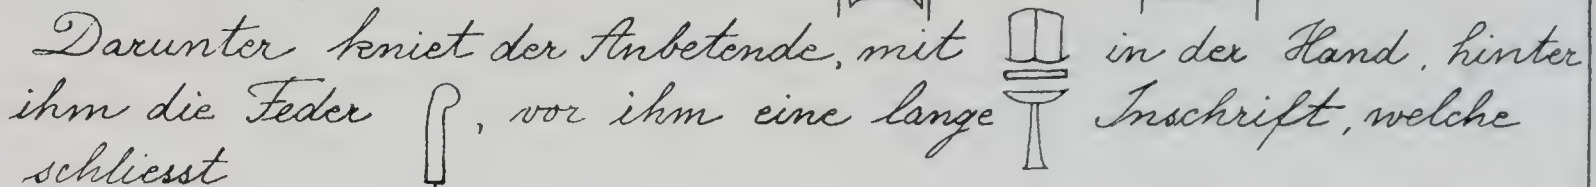 Darunter kniet der Anbetende, mit in der Hand, hinter
ihm die Feder , vor ihm eine lange Inschrift, welche
schliesst